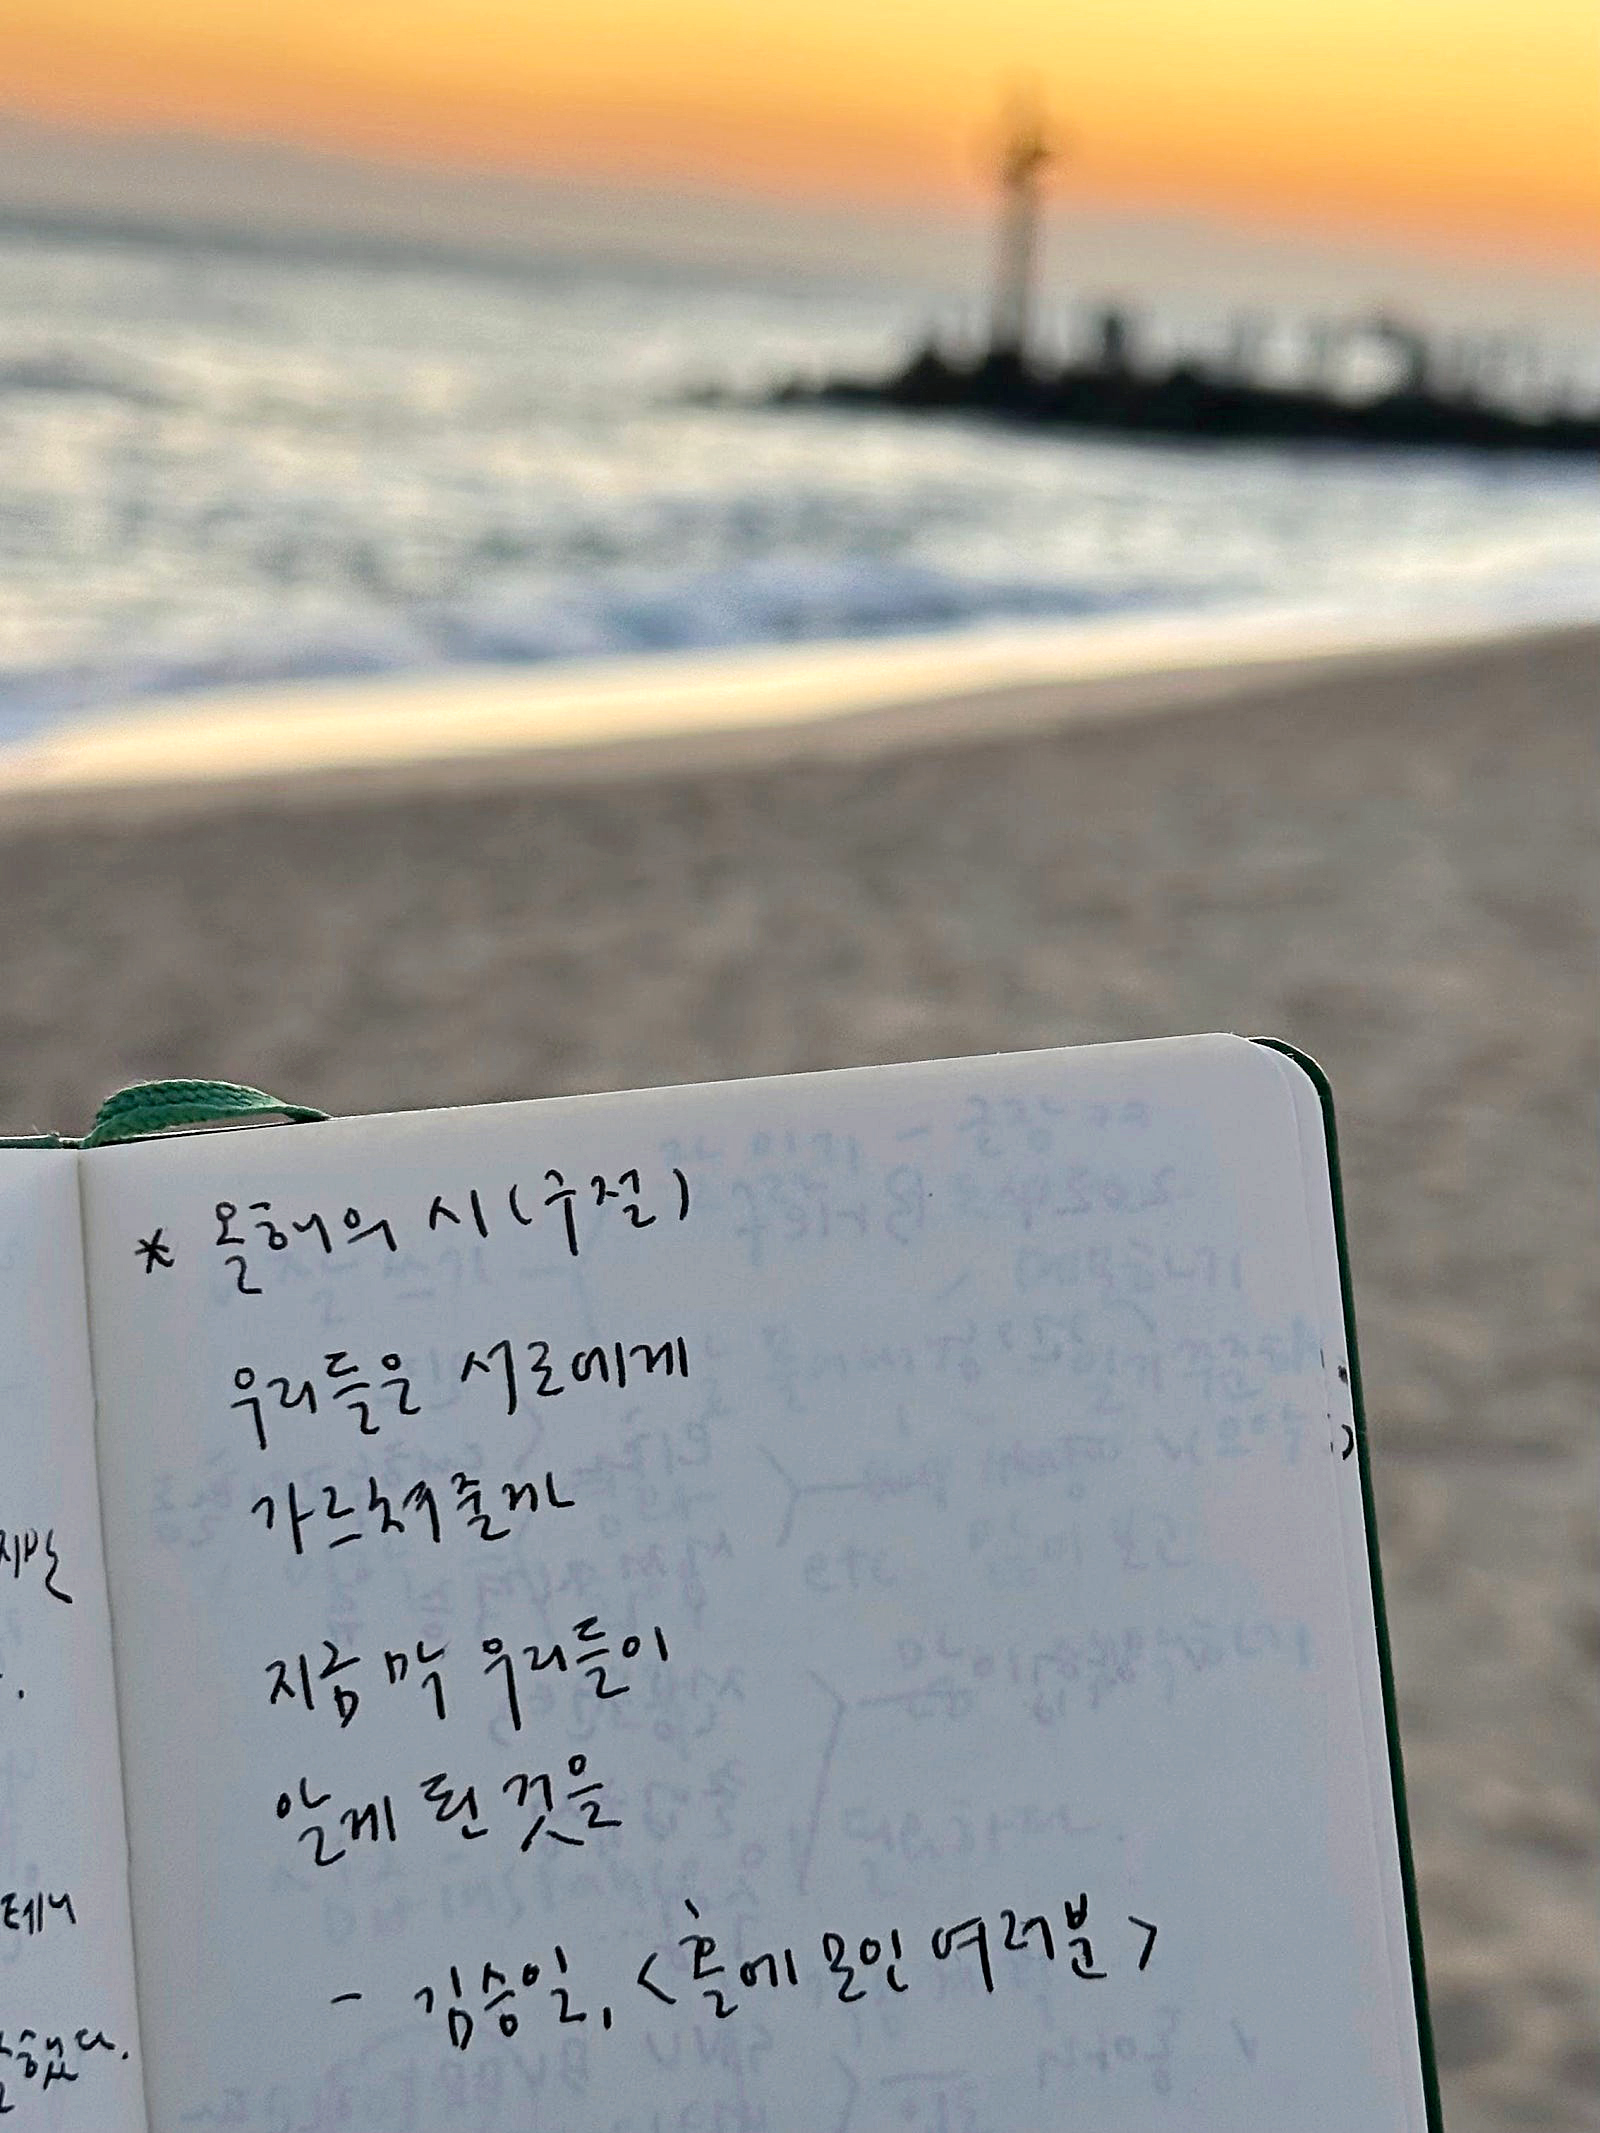 * 올해의 시 (구절)
우리들은 서로에게
가르쳐줄까
지금 막 우리들이
알게 된 것을
- 김승일, <홀에 모인 여러분>
테니
했다.